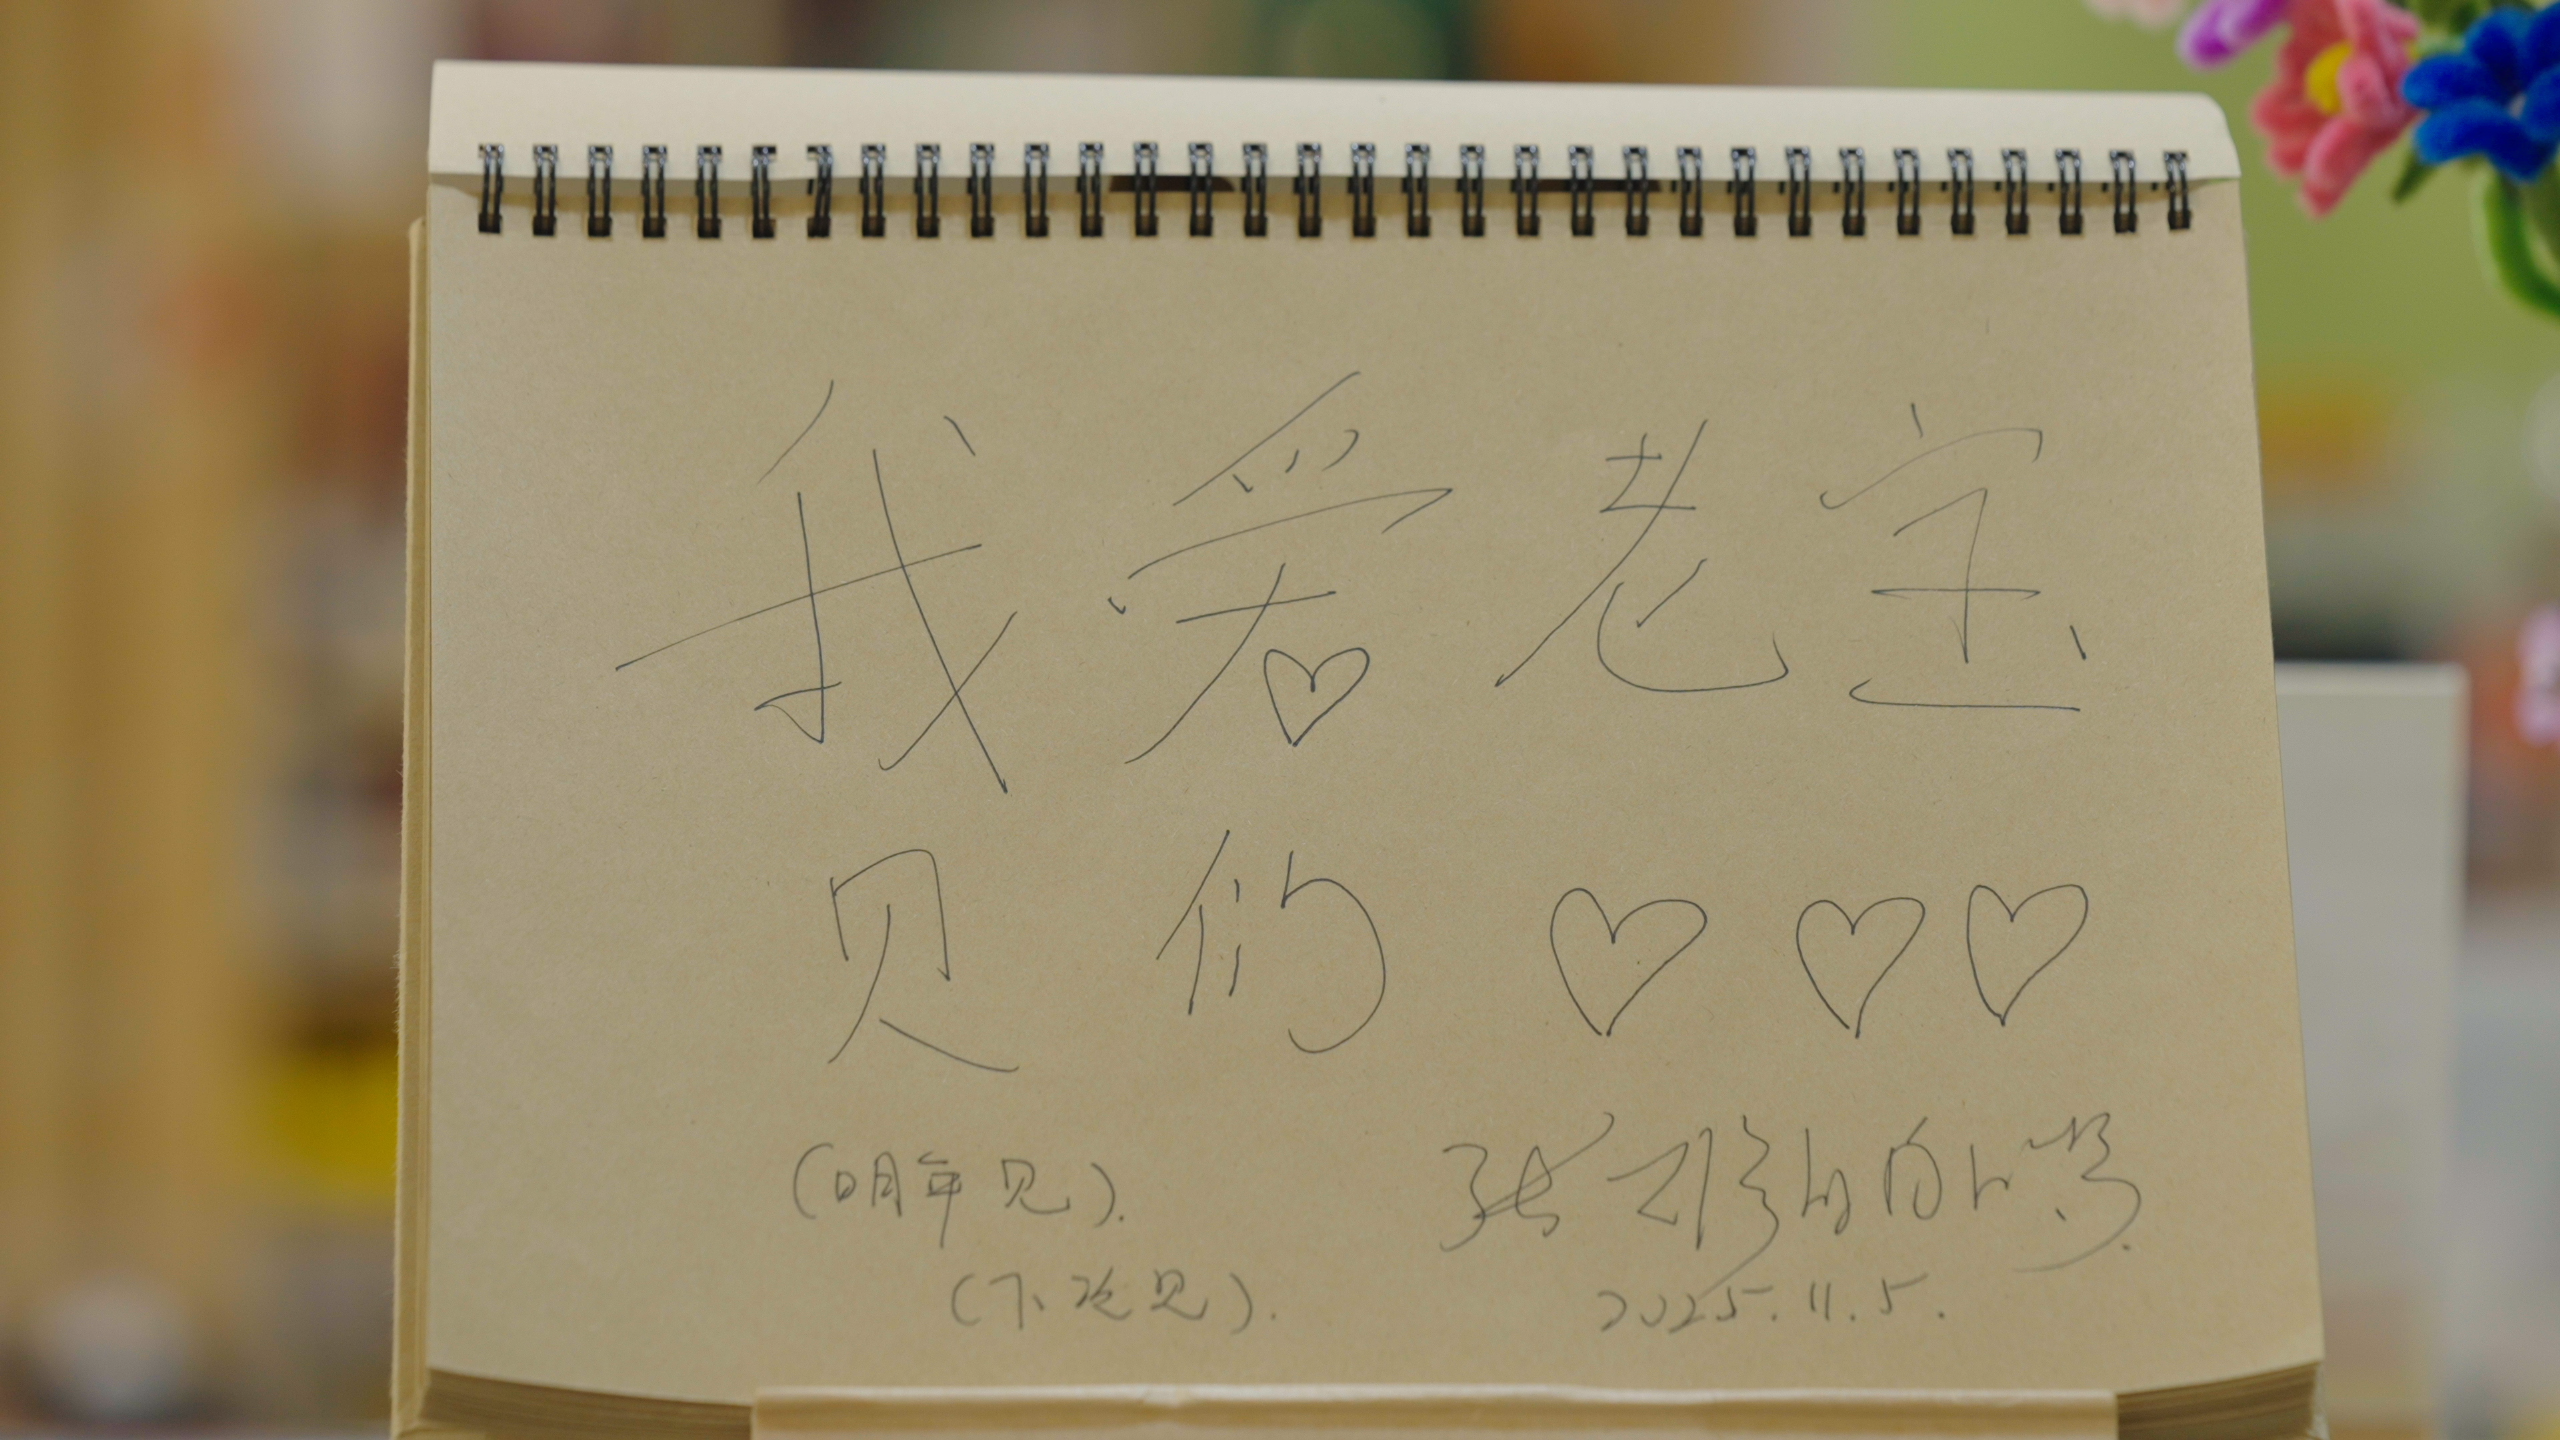 我爱老宝
贝们♡♡♡
(明年见).
(下次见).
2025.11.5.